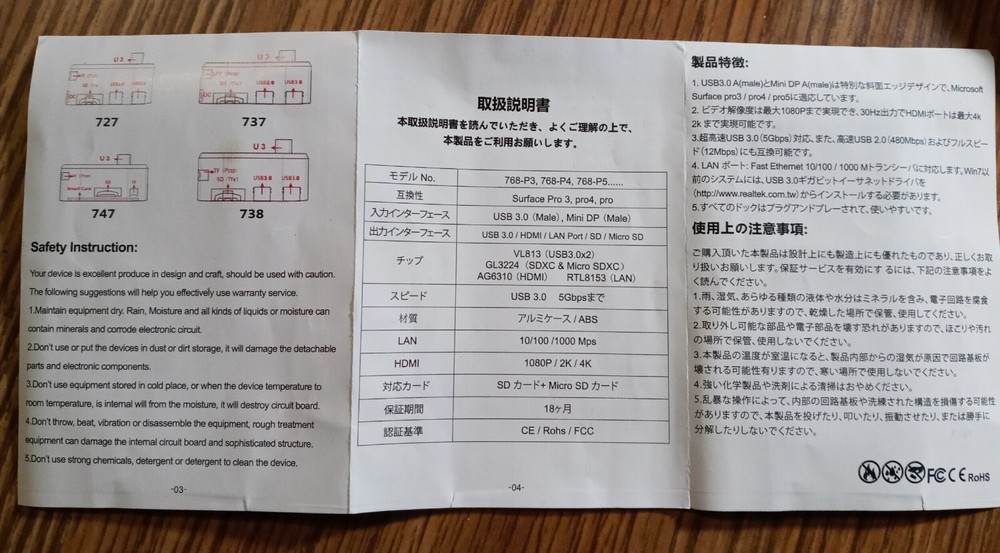 U 3
TF (Pro5)
USB3.0
727
U 3
TF (Pro5)
SD (TFx1)
USB2.0 USB3.0
737
U 3
TF (Pro5)
Smart Card
SD
TF
747
U 3
TF (Pro5)
SD (TFx1)
USB3.0
USB3.0
738
Safety Instruction:
Your device is excellent produce in design and craft, should be used with caution.
The following suggestions will help you effectively use warranty service.
1.Maintain equipment dry. Rain, Moisture and all kinds of liquids or moisture can
contain minerals and corrode electronic circuit.
2.Don't use or put the devices in dust or dirt storage, it will damage the detachable
parts and electronic components.
3.Don't use equipment stored in cold place, or when the device temperature to
room temperature, is internal will from the moisture, it will destroy circuit board.
4.Don't throw, beat, vibration or disassemble the equipment, rough treatment
equipment can damage the internal circuit board and sophisticated structure.
5.Don't use strong chemicals, detergent or detergent to clean the device.
-03-
取扱説明書
本取扱説明書を読んでいただき、よくご理解の上で、
本製品をご利用お願いします。
モデル No. 768-P3, 768-P4, 768-P5......
互換性 Surface Pro 3, pro4, pro
入力インターフェース USB 3.0 (Male) , Mini DP (Male)
出力インターフェース USB 3.0 / HDMI / LAN Port / SD / Micro SD
チップ VL813 (USB3.0x2)
GL3224 (SDXC & Micro SDXC)
AG6310 (HDMI) RTL8153 (LAN)
スピード USB 3.0 5Gbpsまで
材質 アルミケース / ABS
LAN 10/100 /1000 Mps
HDMI 1080P / 2K / 4K
対応カード SD カード+ Micro SD カード
保証期間 18ヶ月
認証基準 CE / Rohs / FCC
-04-
製品特徴:
1. USB3.0 A(male)とMini DP A(male)は特別な斜面エッジデザインで、Microsoft
Surface pro3 / pro4 / pro5に適応しています。
2. ビデオ解像度は最大1080Pまで実現でき、30Hz出力でHDMIポートは最大4k
2k まで実現可能です。
3.超高速USB 3.0 (5Gbps) 対応、また、高速USB 2.0 (480Mbps) およびフルスピー
ド(12Mbps)にも互換可能です。
4. LAN ポート: Fast Ethernet 10/100 / 1000 Mトランシーバに対応します。Win7以
前のシステムには、USB 3.0ギガビットイーサネットドライバを
(http://www.realtek.com.tw) からインストールする必要があります。
5.すべてのドックはプラグアンドプレーされて、使いやすいです。
使用上の注意事項:
ご購入頂いた本製品は設計上にも製造上にも優れたものであり、正しくお取
り扱いお願いします。保証サービスを有効にするには、下記の注意事項をよ
く読んでください。
1.雨、湿気、あらゆる種類の液体や水分はミネラルを含み、電子回路を腐食
する可能性がありますので、乾燥した場所で保管、使用してください。
2.取り外し可能な部品や電子部品を壊す恐れがありますので、ほこりや汚れ
の場所で保管、使用しないでください。
3.本製品の温度が室温になると、製品内部からの湿気が原因で回路基板が
壊される可能性有りますので、寒い場所で使用しないでください。
4.強い化学製品や洗剤による清掃はおやめください。
5.乱暴な操作によって、内部の回路基板や洗練された構造を損傷する可能性
がありますので、本製品を投げたり、叩いたり、振動させたり、または勝手に
分解したりしないでください。
FC CE RoHS